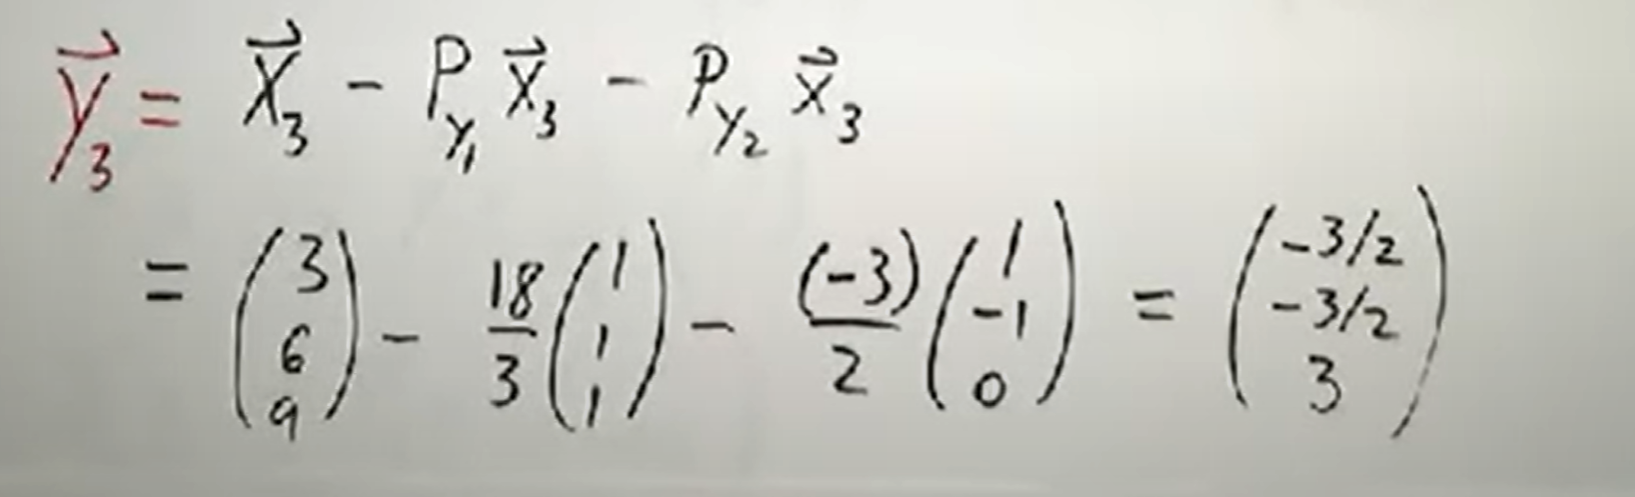 $\vec{y}_3 = \vec{x}_3 - P_{y_1} \vec{x}_3 - P_{y_2} \vec{x}_3$
$= \begin{pmatrix} 3 \\ 6 \\ 9 \end{pmatrix} - \frac{18}{3} \begin{pmatrix} 1 \\ 1 \\ 1 \end{pmatrix} - \frac{(-3)}{2} \begin{pmatrix} 1 \\ -1 \\ 0 \end{pmatrix} = \begin{pmatrix} -3/2 \\ -3/2 \\ 3 \end{pmatrix}$